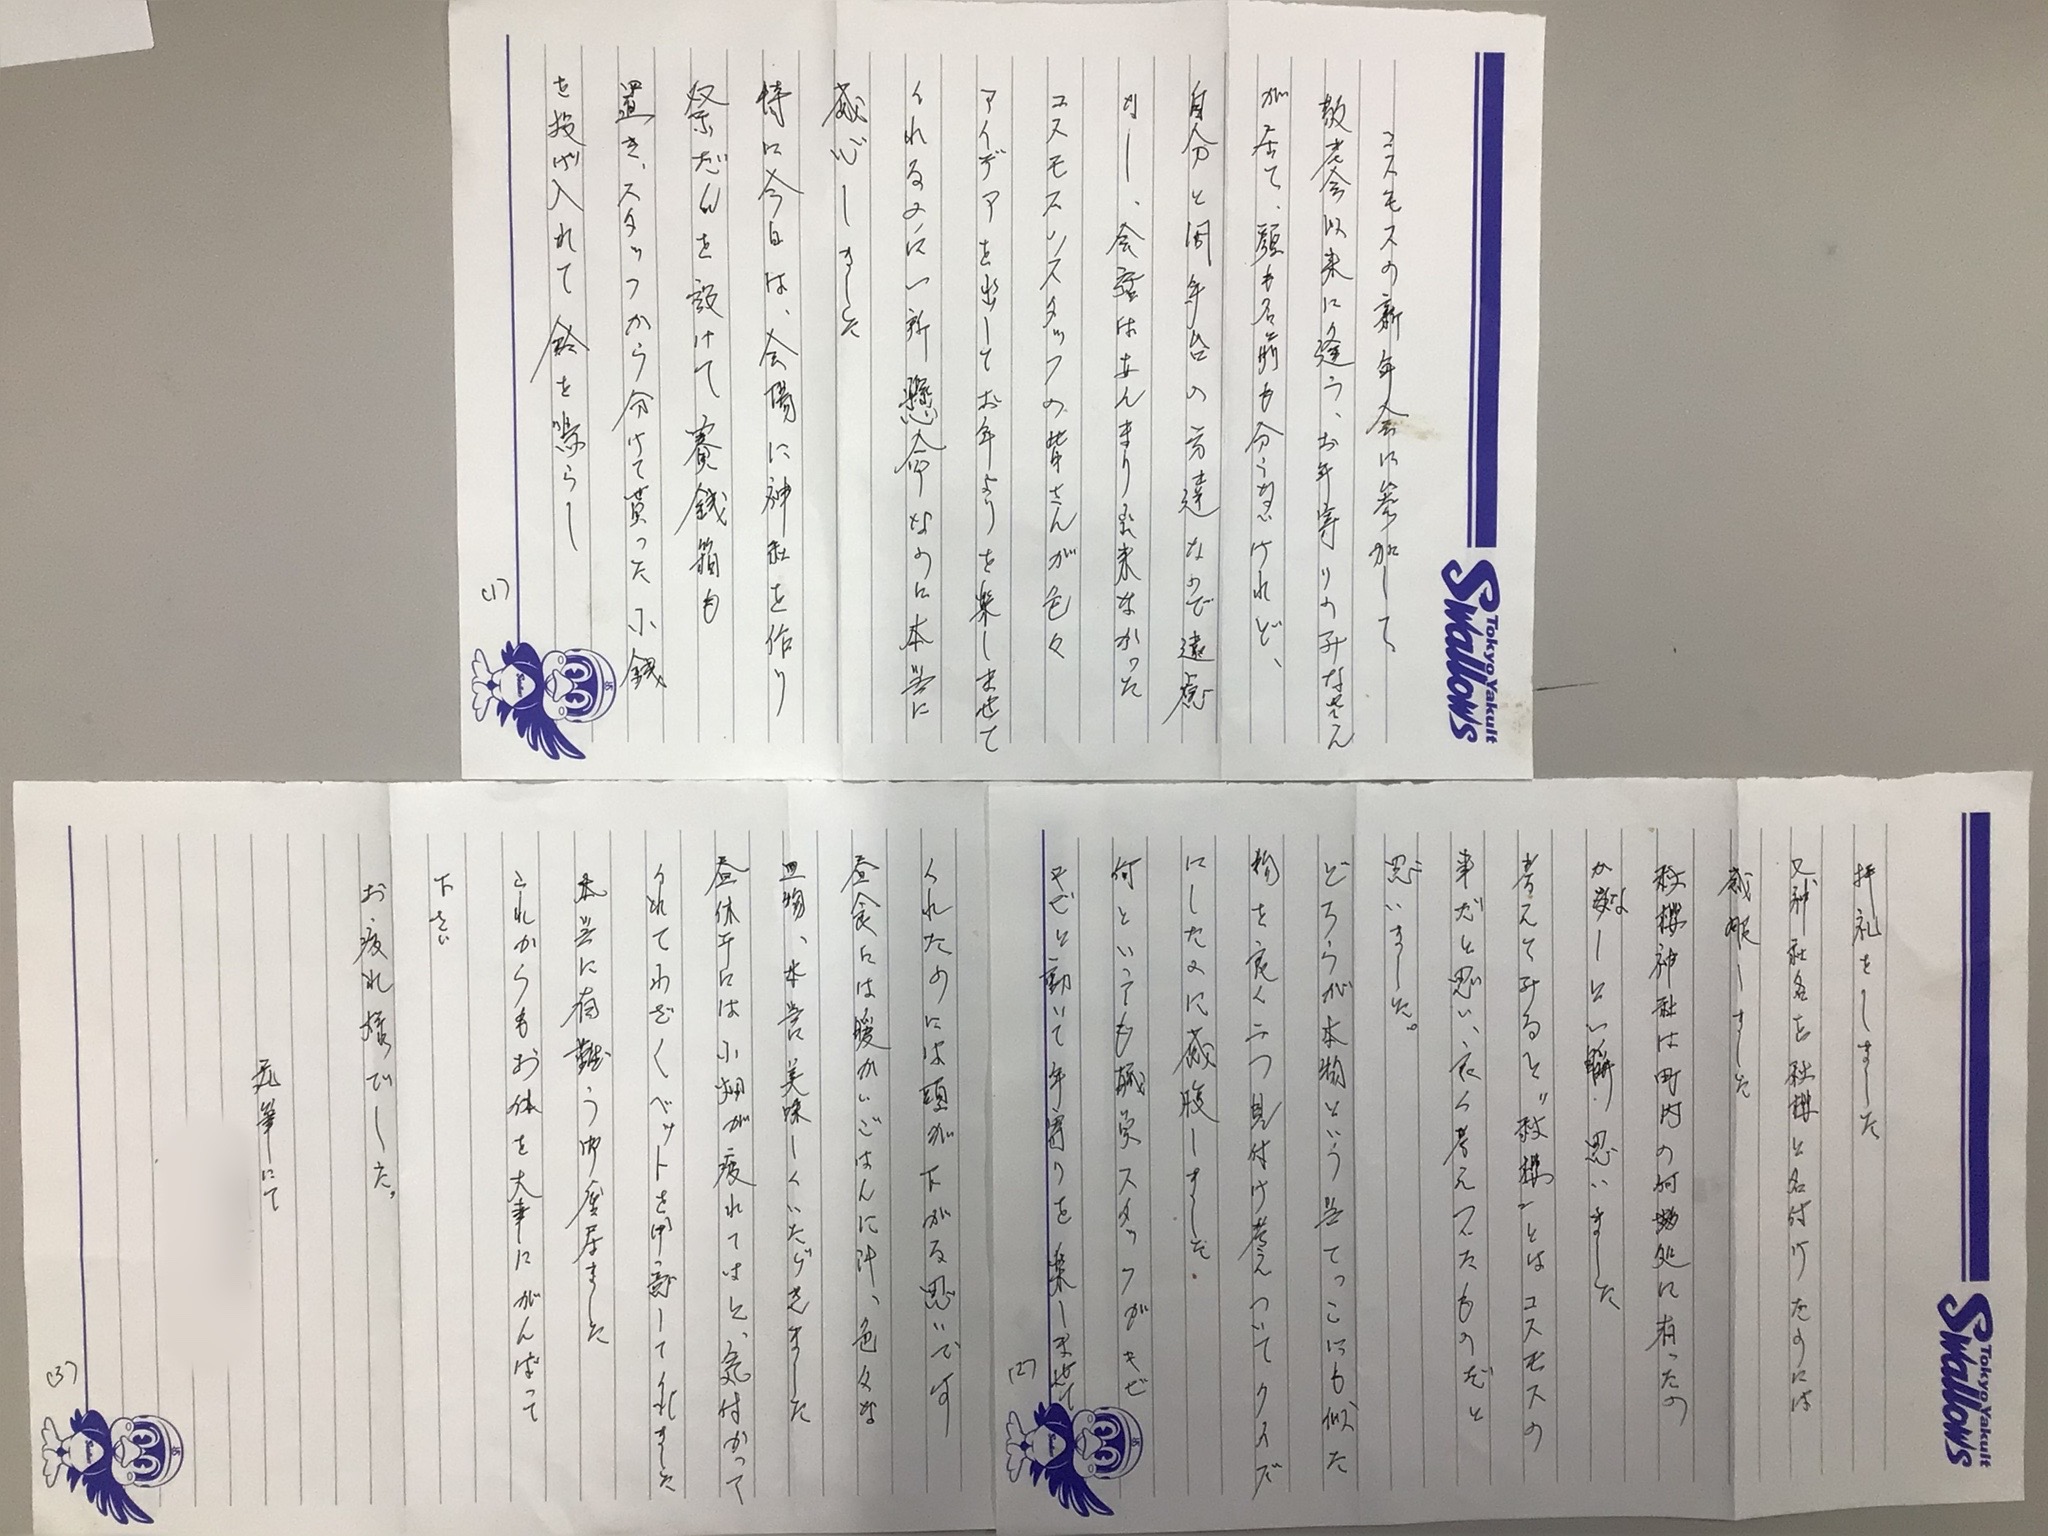 コスモスの新年会に参加して
敬老会以来に逢う、お年寄りのみなさん
が居て、顔も名前も分うないけれど、
自分と同年台の方達なので遠慮
なし、会話はあんまり出来なかった
コスモスのスタッフの皆さんが色々
アイデアを出してお年よりを楽しませて
くれるのに一所懸命なのに本当に
感心しました
特に今日は、会場に神社を作り
祭だんを設けて賽銭箱も
置き、スタッフから分けて貰った小銭
を投げ入れて鈴を鳴らし
(1)
Tokyo Yakult
Swallows
拝礼をしました
又神社名を秋桜と名付けたのには
感服しました
秋桜神社は町内の何処に有ったの
かなーと一瞬思いました
考えてみると"秋桜"とはコスモスの
事だと思い、良く考えつたものだと
思いました。
どちらが本物という当てっこにも似た
物を良く二つ見付け考えついてクイズ
にしたのに感服しました
何といっても職員スタッフがキビ
キビと動いて年寄りを楽しませて
(2)
Tokyo Yakult
Swallows
くれたのには頭が下がる思いです
昼食には暖かいごはんに汁、色々な
皿物、本当に美味しくいただきました
昼休中には小畑が疲れてはと、気付かって
くれてわざくベットを用意してくれました
本当に有難う御座居ました
これからもお体を大事にがんばって
下さい
お疲れ様でした。
乱筆にて
(3)